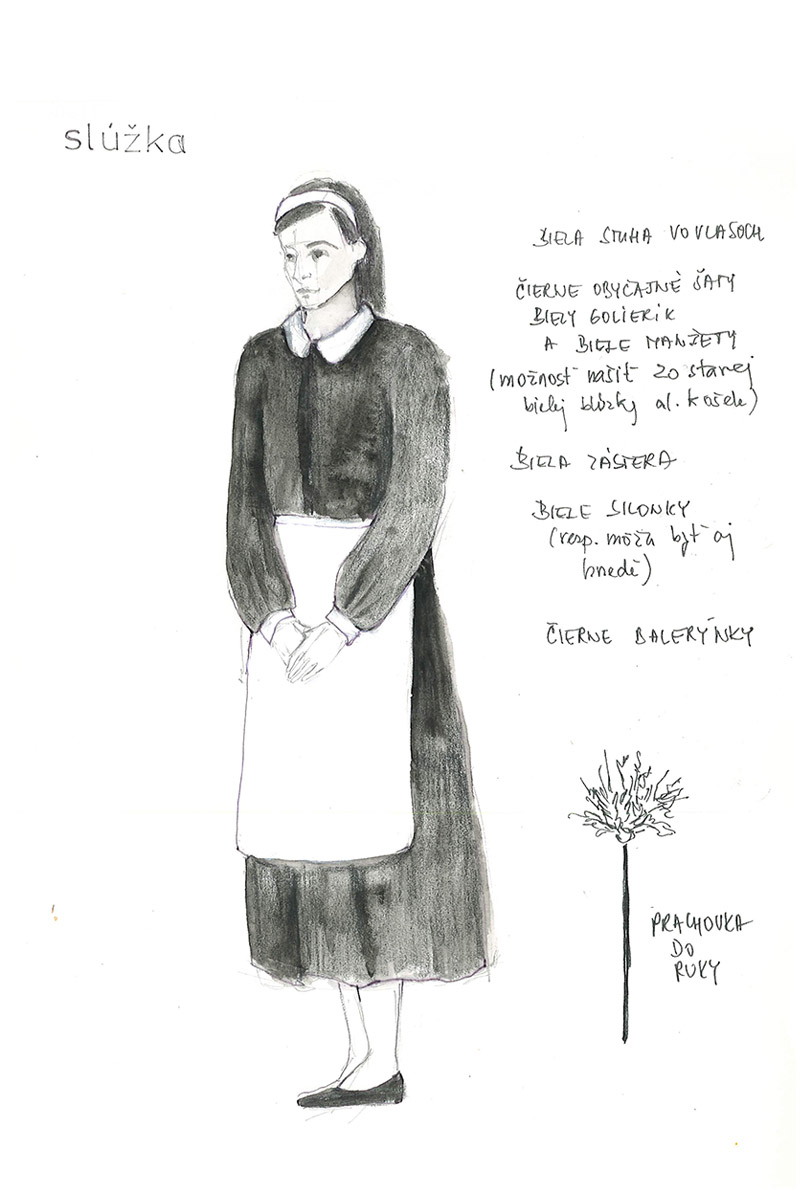 slúžka
BIELA STUHA VO VLASOCH
ČIERNE OBYČAJNÉ ŠATY
BIELY GOLIERIK
A BIELE MANŽETY
(možnosť našiť zo starej
bielej blúzky al. košele)
BIELA ZÁSTERA
BIELE SILONKY
(resp. môžu byť aj
hnedé)
ČIERNE BALERÝNKY
PRACHOVKA
DO
RUKY